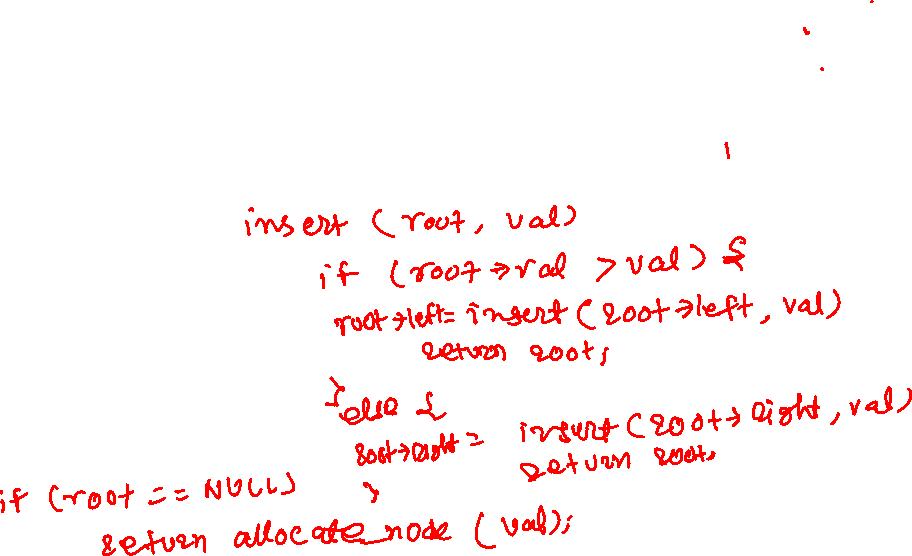 insert (root, val)
if (root→val > val) {
root→left = insert (root→left, val)
return root;
}else {
root→right = insert (root→right, val)
return root;
}
if (root == NULL)
return allocate_node (val);